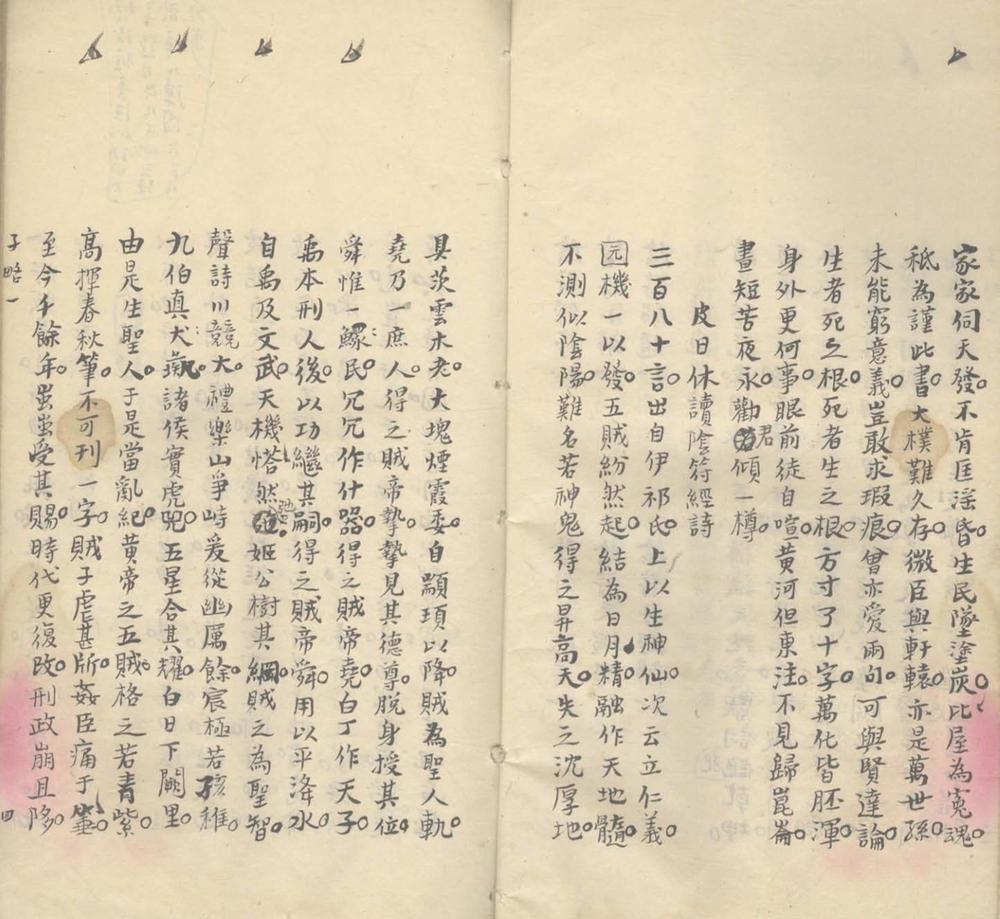 家家伺天發不肯匡淫昏生民墜塗炭比屋為寃魂
秖為謹此書大樸難久存微臣與軒轅亦是萬世孫
未能窮意義豈敢求瑕痕曾亦愛兩句可與賢達論
生者死之根死者生之根方寸了十字萬化皆胚渾
身外更何事眼前徒自喧黄河但東注不見歸崑崙
晝短苦夜永勸君傾一樽
皮日休讀陰符經詩
三百八十言出自伊祁氏上以生神仙次云立仁義
玄機一以發五賊紛然起結為日月精融作天地髓
不測似陰陽難名若神鬼得之昇高天失之沈厚地
具茨雲木老大塊煙霞委自顓頊以降賊為聖人軌
堯乃一庶人得之賊帝摯摯見其德尊脱身授其位
舜惟一鰥民冗冗作什器得之賊帝堯白丁作天子
禹本刑人後以功繼其嗣得之賊帝舜用以平洚水
自禹及文武天機惛然弛姬公樹其綱賊之為聖智
聲詩川競大禮樂山爭峙爰從幽厲餘宸極若孩稚
九伯真犬彘諸侯實虎兕五星合其耀白日下闕里
由是生聖人于是當亂紀黄帝之五賊格之若青紫
高揮春秋筆不可刊一字賊子虐甚斨姦臣痛于箠
至今千餘年蚩蚩受其賜時代更復改刑政崩且陊
子略一 四